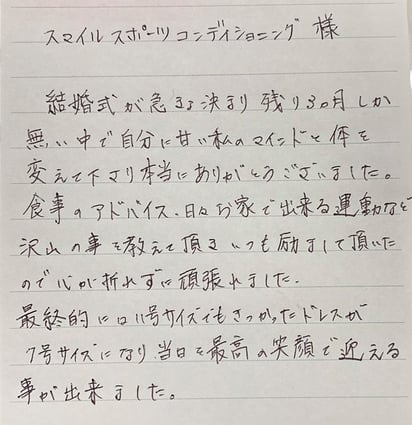 スマイルスポーツコンディショニング 様
結婚式が急きょ決まり 残り3ヵ月しか
無い中で自分に甘い私のマインドと体を
変えて下さり本当にありがとうございました。
食事のアドバイス、日々お家で出来る運動など
沢山の事を教えて頂きいつも励まして頂いた
ので心が折れずに頑張れました.
最終的には11号サイズでもきつかったドレスが
7号サイズになり、当日を最高の笑顔で迎える
事が出来ました。